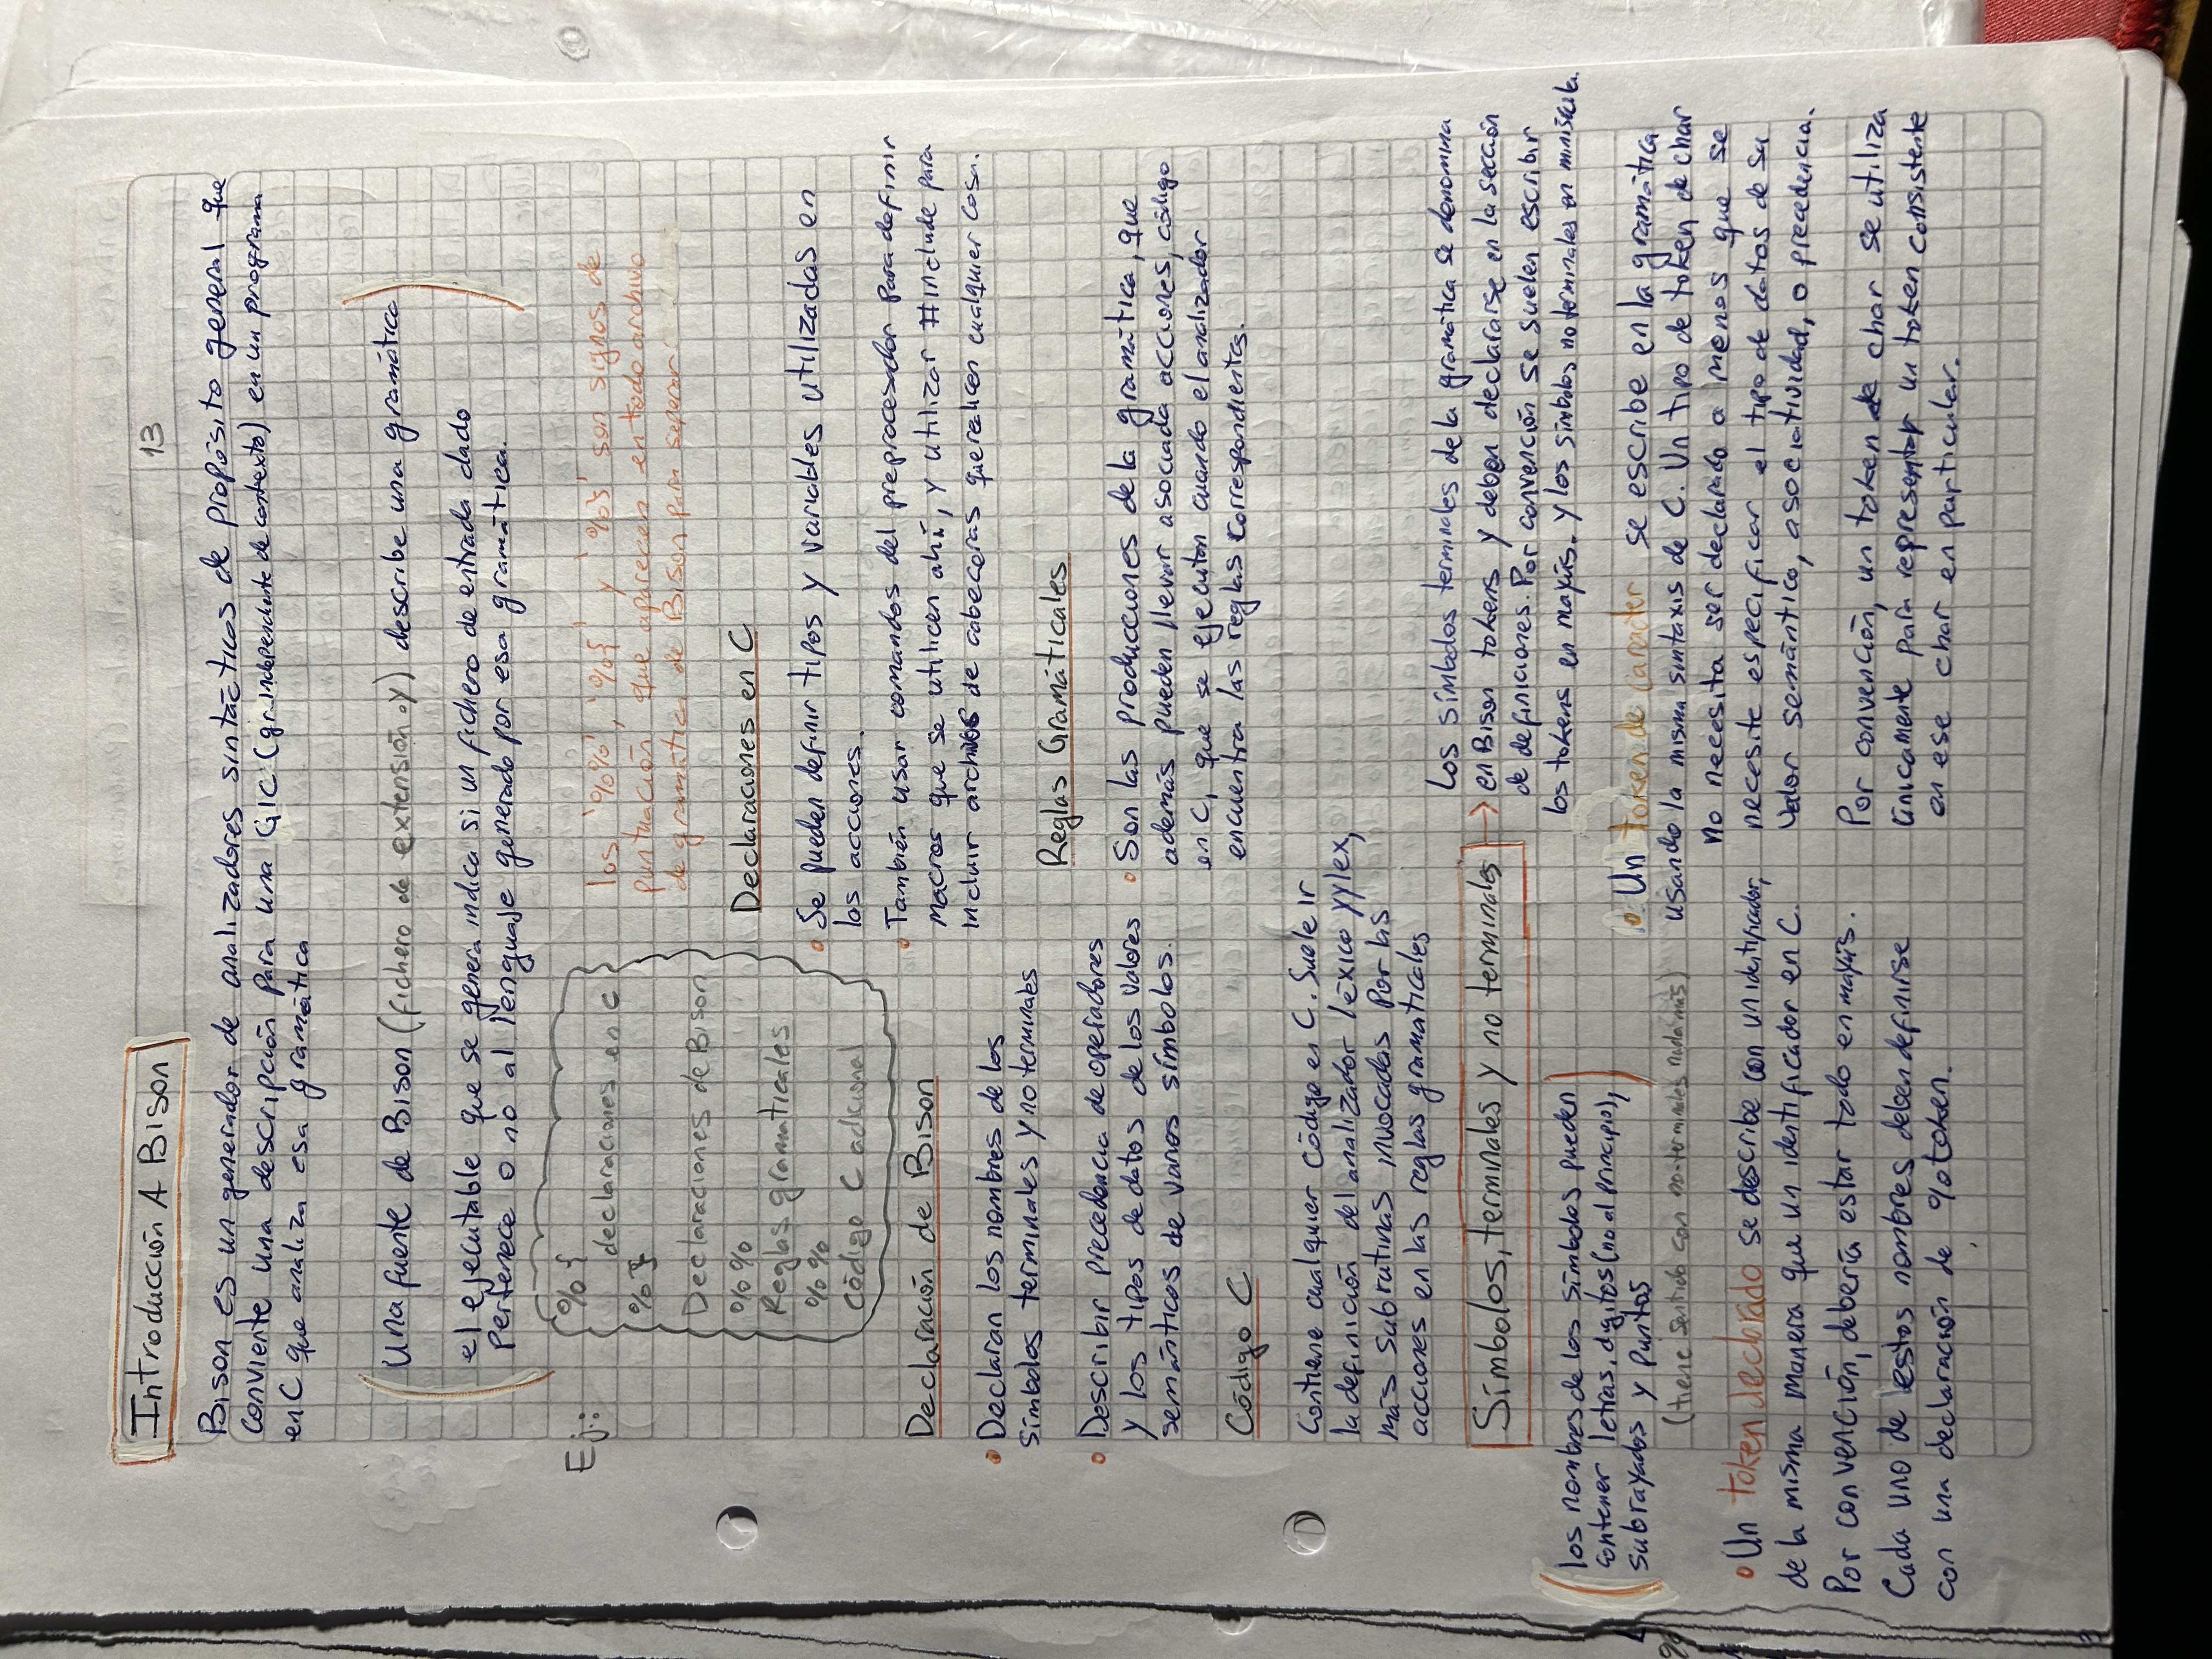 Introducción A Bison
13
Bison es un generador de analizadores sintácticos de propósito general que
conviente una descripción para una GIC (gr. independiente de contexto) en un programa
en C que analiza esa gramática
Una fuente de Bison (fichero de extensión .y) describe una gramática
el ejecutable que se genera indica si un fichero de entrada dado
pertenece o no al lenguaje generado por esa gramática.
Ej.:
%{
declaraciones en C
%}
Declaraciones de Bison
%%
Reglas gramaticales
%%
Código C adicional
los '%%', '%{' y '%}' son signos de
puntuación que aparecen en todo archivo
de gramática de Bison para separar
Declaraciones en C
• Se pueden definir tipos y variables utilizadas en
las acciones.
• También usar comandos del preprocesador para definir
macros que se utilicen ahí, y utilizar #include para
incluir archivos de cabeceras que realicen cualquier cosa.
Declaración de Bison
• Declaran los nombres de los
símbolos terminales y no terminales
• Describir precedencia de operadores
y los tipos de datos de los valores
semánticos de varios símbolos.
Reglas Gramáticales
• Son las producciones de la gramática, que
además pueden llevar asociada acciones, código
en C, que se ejecutan cuando el analizador
encuentra las reglas correspondientes.
Código C
Contiene cualquier código en C. Suele ir
la definición del analizador léxico yylex,
más subrutinas invocadas por las
acciones en las reglas gramaticales
Símbolos, terminales y no terminales
Los símbolos terminales de la gramática se denomina
en Bison tokens y deben declararse en la sección
de definiciones. Por convención se suelen escribir
los tokens en mayús. y los símbolos no terminales en miniscula.
los nombres de los símbolos pueden
contener letras, dígitos (no al principio),
subrayados y puntos
(tiene sentido con no-terminales nada más)
• Un token declarado se describe con un identificador,
de la misma manera que un identificador en C.
Por convención, debería estar todo en mayús.
Cada uno de estos nombres deben definirse
con una declaración de %token.
• Un token de caracter se escribe en la gramática
usando la misma sintaxis de C. Un tipo de token de char
no necesita ser declarado a menos que se
necesite especificar el tipo de datos de su
valor semántico, asociatividad, o precedencia.
Por convención, un token de char se utiliza
únicamente para representar un token consistente
en ese char en particular.